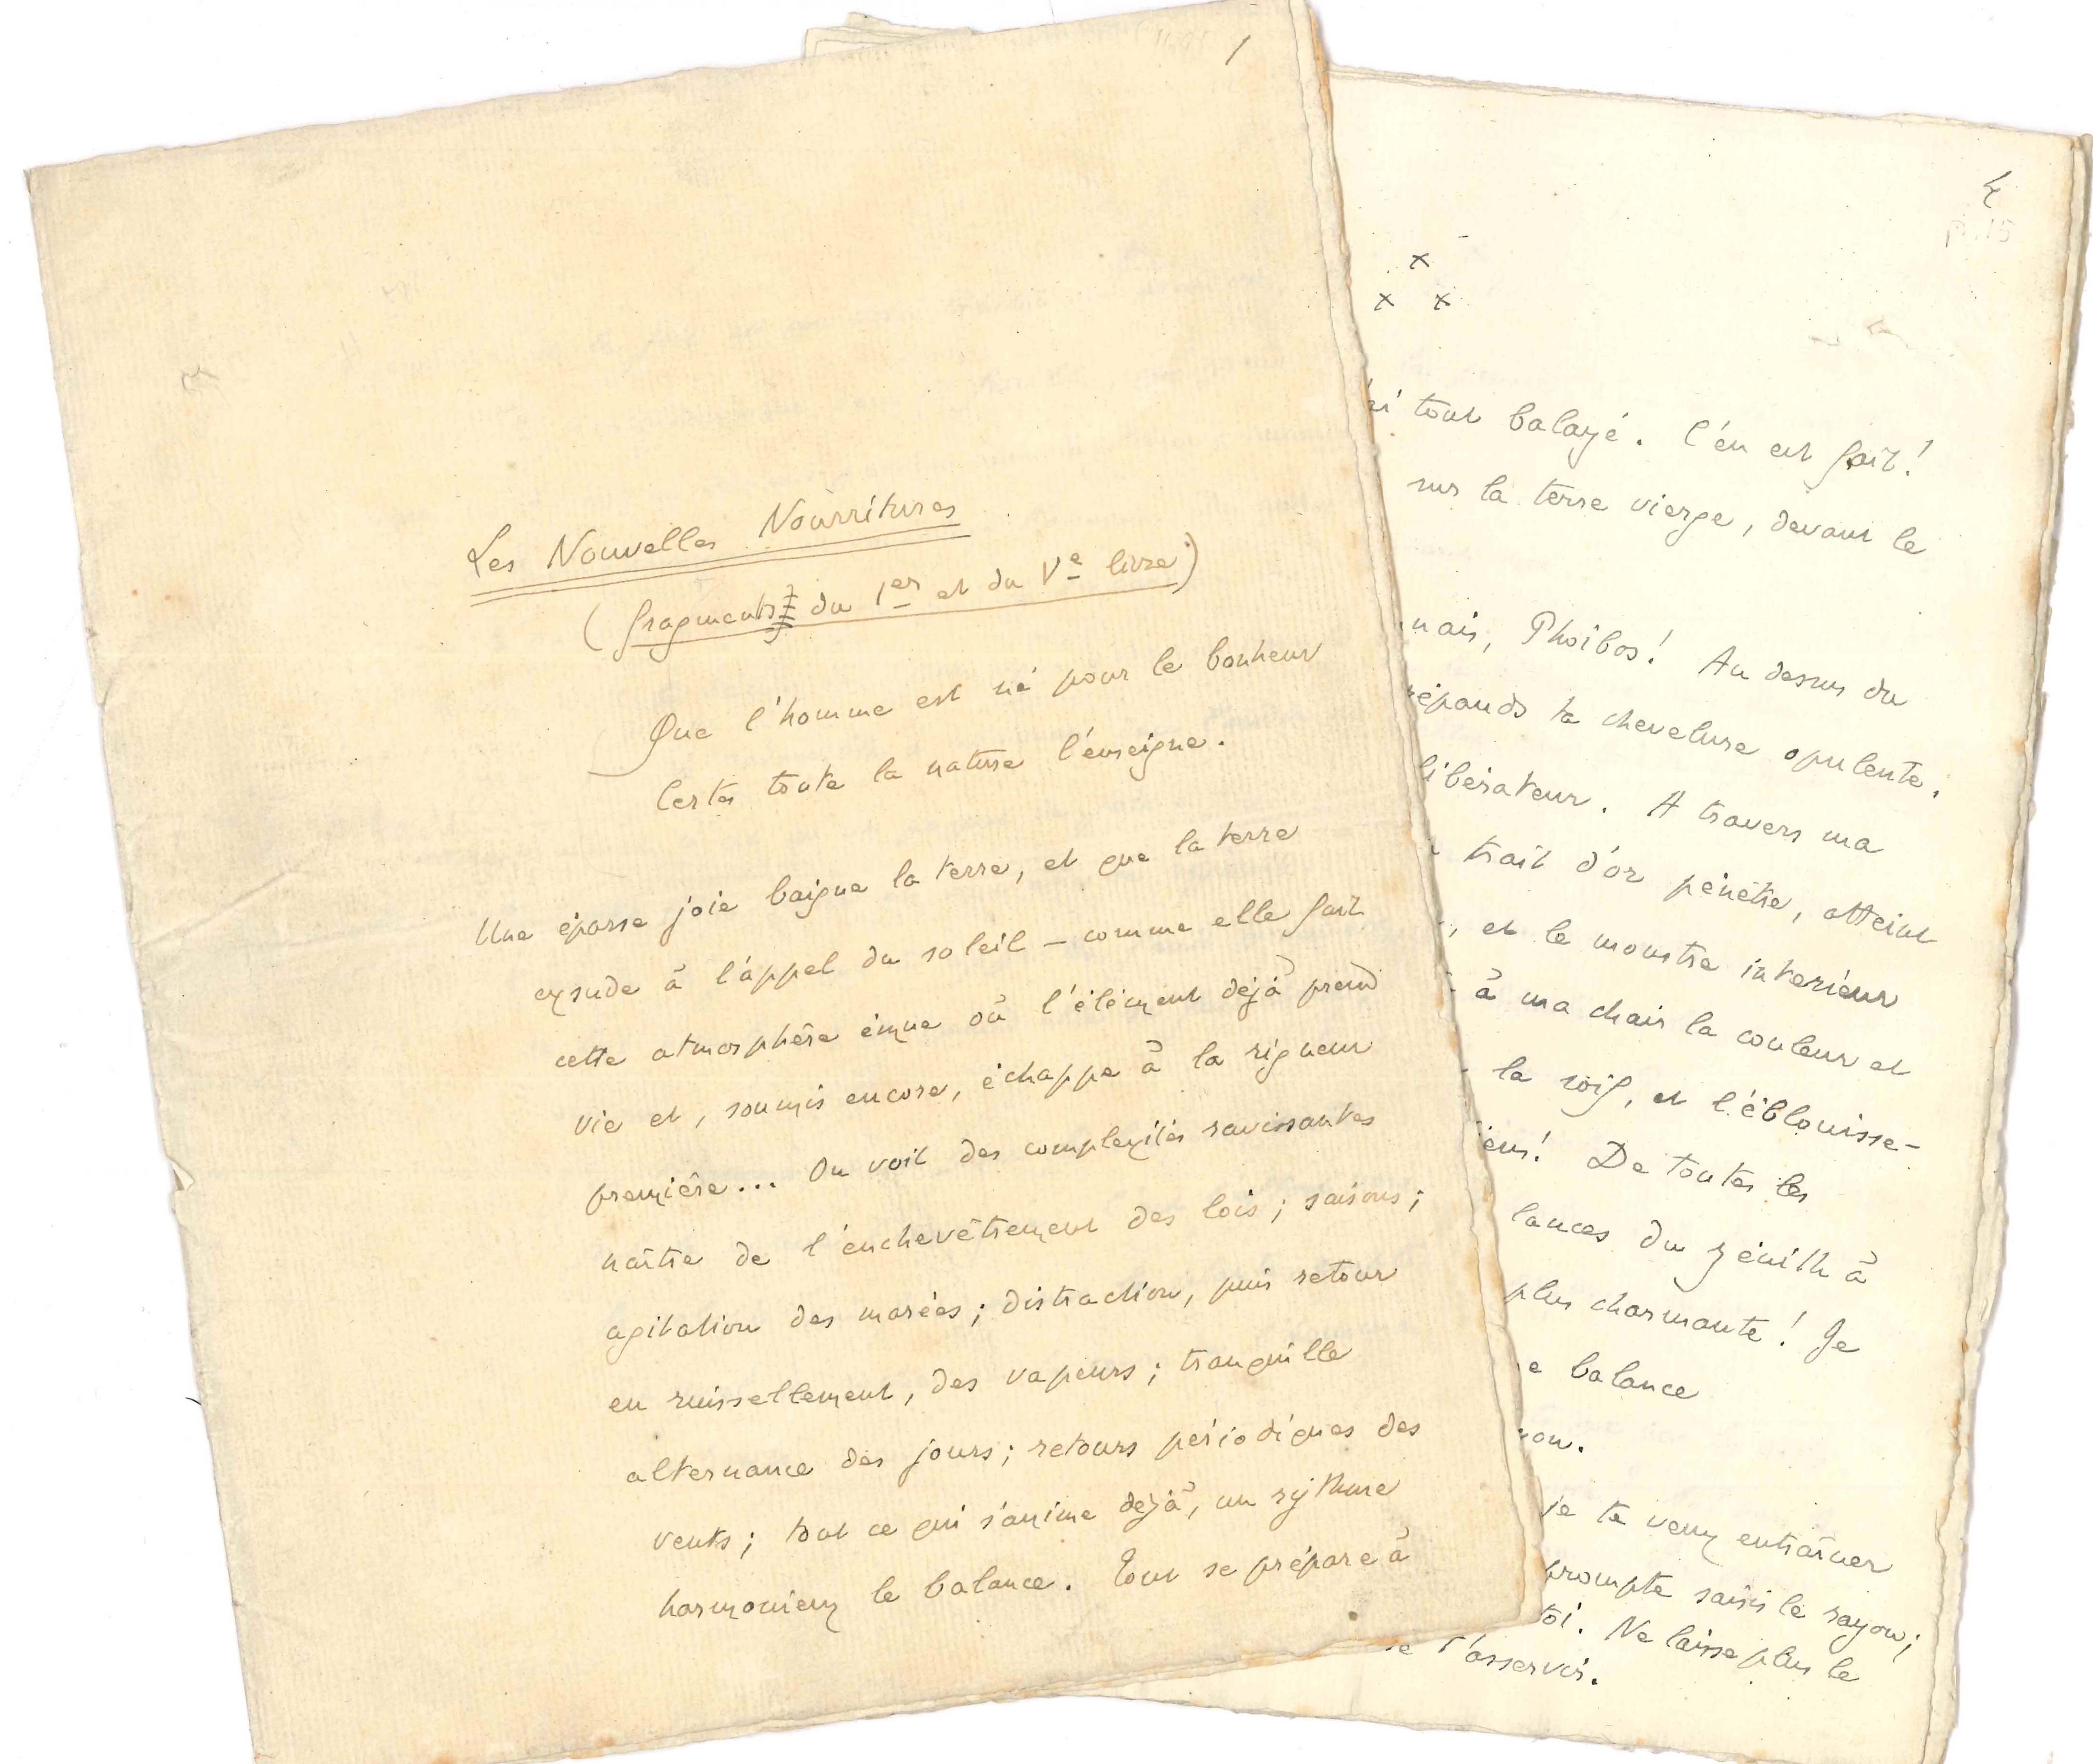 1
Les Nouvelles Nourritures
(fragments du 1er et du Ve livre)
Que l'homme est né pour le bonheur
Certes toute la nature l'enseigne.
Une éparse joie baigne la terre, et que la terre
exsude à l'appel du soleil – comme elle fait
cette atmosphère émue où l'élément déjà prend
vie et, soumis encore, échappe à la rigueur
première... On voit des complexités ravissantes
naître de l'enchevêtrement des lois ; saisons ;
agitation des marées ; distraction, puis retour
en ruissellement, des vapeurs ; tranquille
alternance des jours ; retours périodiques des
vents ; tout ce qui s'anime déjà, un rythme
harmonieux le balance. Tout se prépare à
4
p. 15
x
x x
tout balayé. C'en est fait !
sur la terre vierge, devant le
Phoibos ! Au dessus du
répands ta chevelure opulente.
libérateur. A travers ma
trait d'or pénètre, atteint
, et le monstre intérieur
à ma chair la couleur et
la soif, et l'éblouisse-
De toutes les
lances du zénith à
plus charmante ! Je
balance
je te veux entraîner
prompte saisis le rayon ;
toi. Ne laisse plus le
t'asservir.